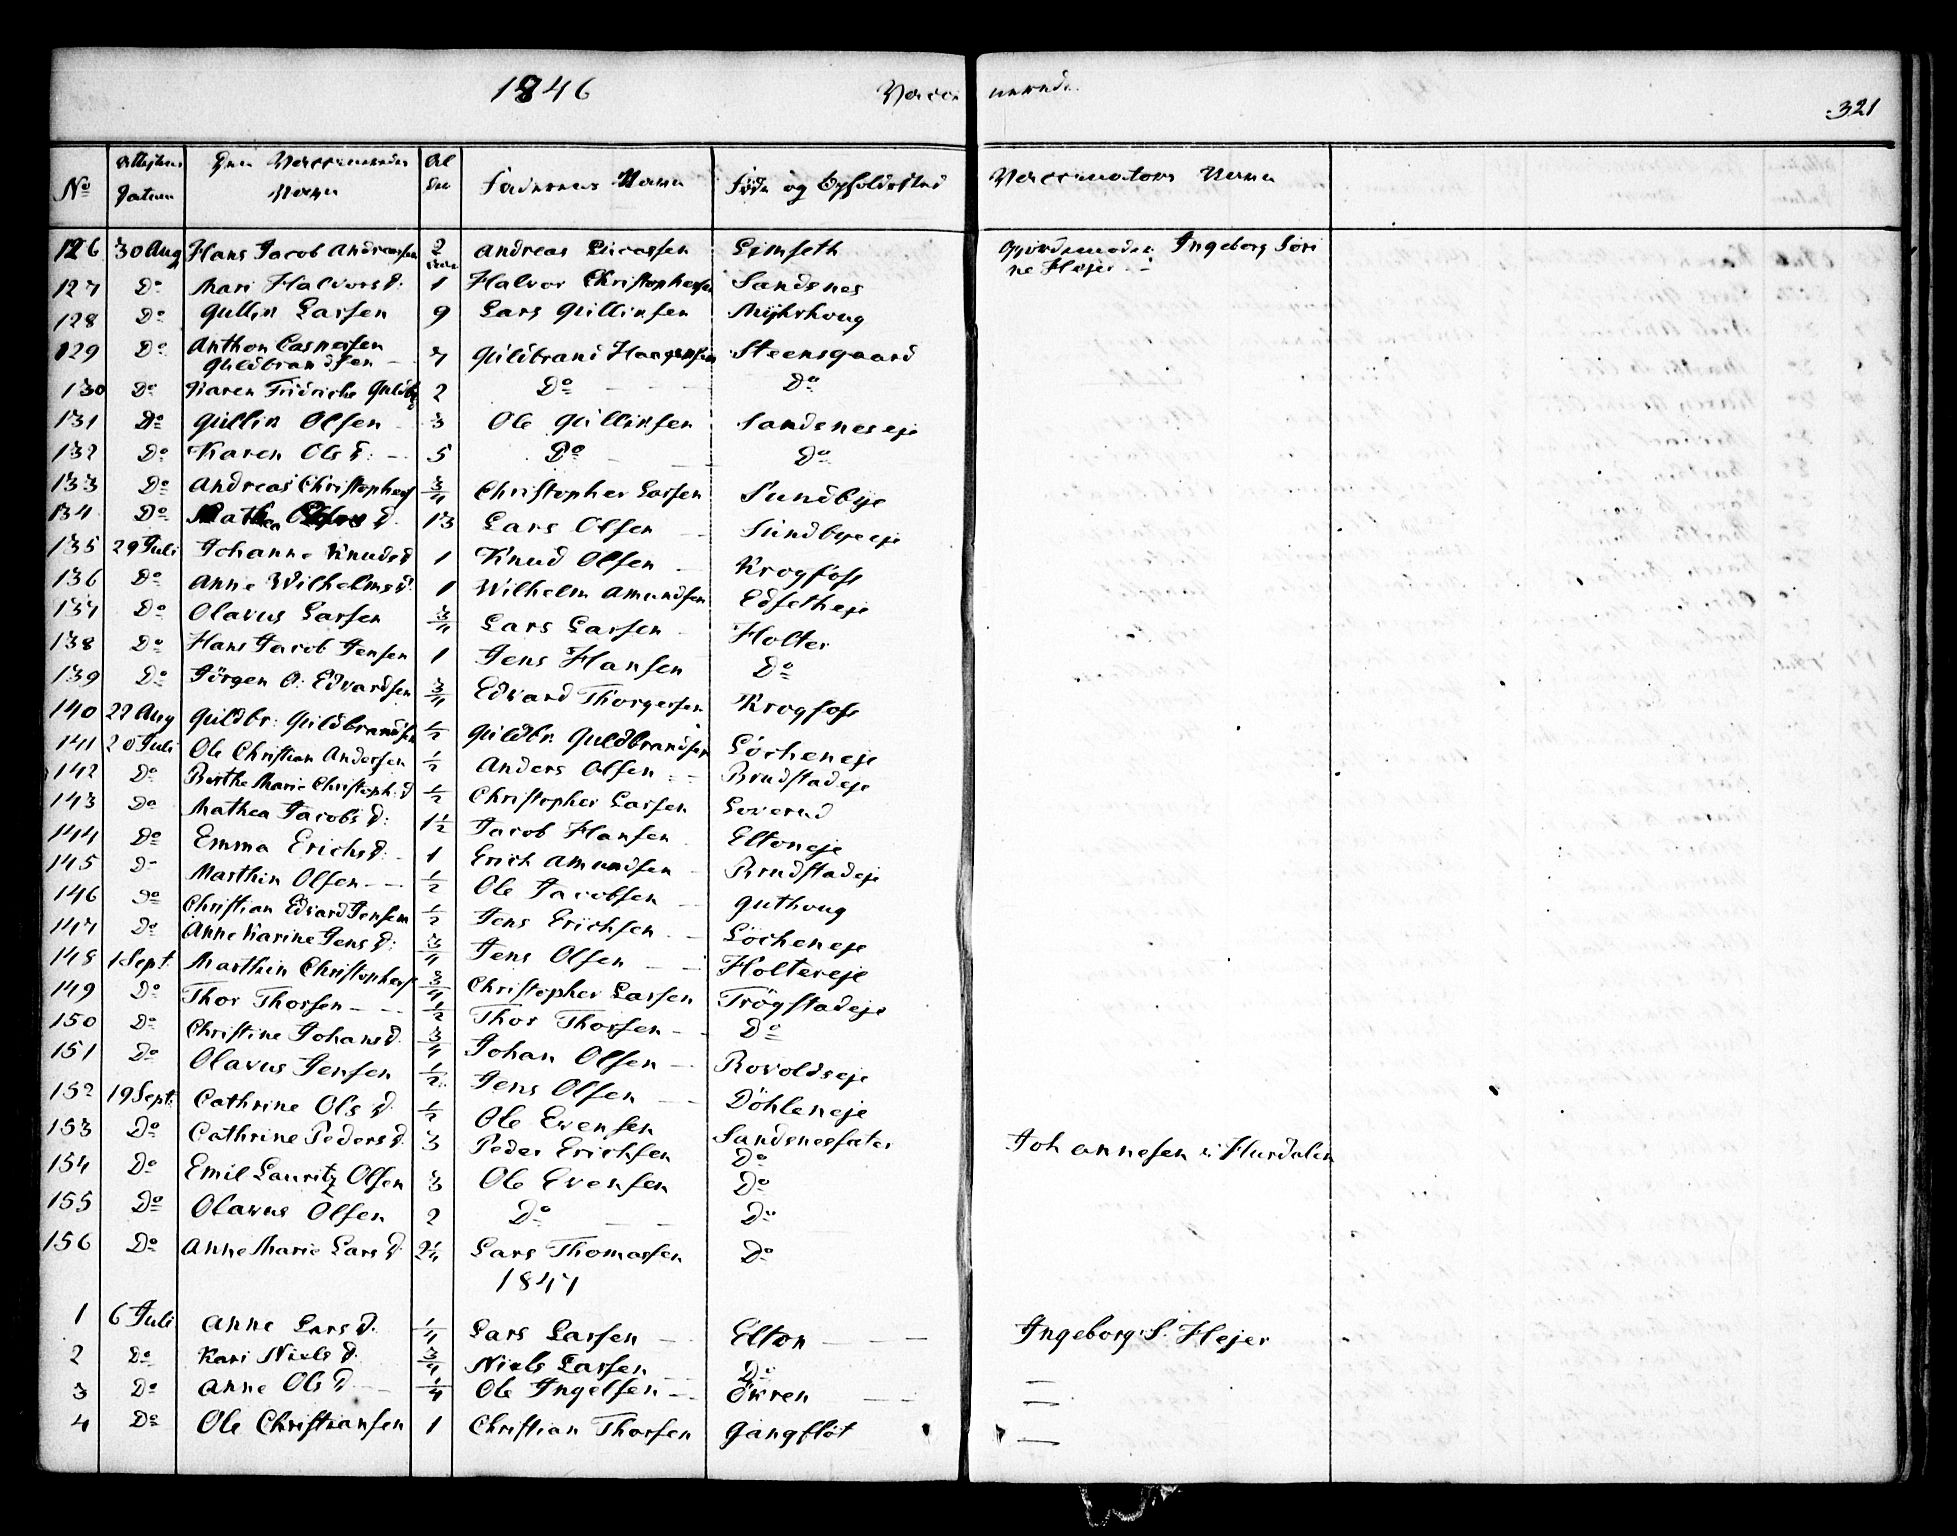 1846 Vaccinerede
321
No Attestens Datum Den Vaccineredes Navn Alder Faderens Navn Føde og Opholdssted Vaccinators Navn
126 30 Aug Hans Jacob Andreassen 2 Andreas Lucassen Limseth Gjordemoder Ingeborg Sørine Hejer
127 Do Mari Halvorsd: 1 Halvor Christophersen Sandsnes
128 Do Gullin Larsen 9 Lars Gullinsen Myhrhoug
129 Do Anthon Caspersen Guldbrandsen 7 Guldbrand Haagensen Steensgaard
130 Do Karen Fridriche Guldbd 2 Do Do
131 Do Gullin Olsen 3 Ole Gullinsen Sandsneseje
132 Do Karen Olsd: 5 Do Do
133 Do Andreas Christophers 3/4 Christopher Larsen Sundbye
134 Do Mathea Olsd. 13 Lars Olsen Sundbyeeje
135 29 Juli Johanne Knudsd 1 Knud Olsen Krogfoss
136 Do Anne Wilhelmsd. 1 Wilhelm Amundsen Edsetheje
137 Do Olavus Larsen 3/4 Lars Larsen Holter
138 Do Hans Jacob Jensen 1 Jens Hansen Do
139 Do Jörgen O: Edvardsen 3/4 Edvard Thorgersen Krogfoss
140 22 Aug Guldbr: Guldbrandsen 1/2 Guldbr. Guldbrandsen Löcheneje
141 20 Juli Ole Christian Andersen 1/2 Anders Olsen Brudstadeje
142 Do Berthe Marie Christoph:d 1/2 Christopher Larsen Loverud
143 Do Mathea Jacobsd: 1 1/2 Jacob Hansen Eltoneje
144 Do Emma Erichsd: 1 Erich Amundsen Brudstadeje
145 Do Marthin Olsen 1/2 Ole Jacobsen Guthoug
146 Do Christian Edvard Jensen 1/2 Jens Erichsen Löcheneje
147 Do Anne Karine Jensd: 3/4 Jens Olsen Holtereje
148 1 Sept. Marthin Christophers 3/4 Christopher Larsen Trögstadeje
149 Do Thor Thorsen 1/2 Thor Thorsen Do
150 Do Christine Johansd. 3/4 Johan Olsen Rovoldseje
151 Do Olavus Jensen 1/2 Jens Olsen Döhleneje
152 19 Sept. Cathrine Olsd. 1/2 Ole Evensen Sandsnessæter
153 Do Cathrine Pedersd. 3 Peder Erichsen Do Johannesen i Hurdalen
154 Do Emil Lauritz Olsen 3 Ole Evensen Do
155 Do Olavus Olsen 2 Do Do
156 Do Anne Marie Larsd. 2 1/4 Lars Thomassen Do
1847
1 6 Juli Anne Larsd. 1/4 Lars Larsen Elton Ingeborg S. Hejer
2 Do Kari Nielsd. 3/4 Niels Larsen Do
3 Do Anne Olsd 1/4 Ole Ingelsen Ökren
4 Do Ole Christiansen 1 Christian Thorsen Gangflöt